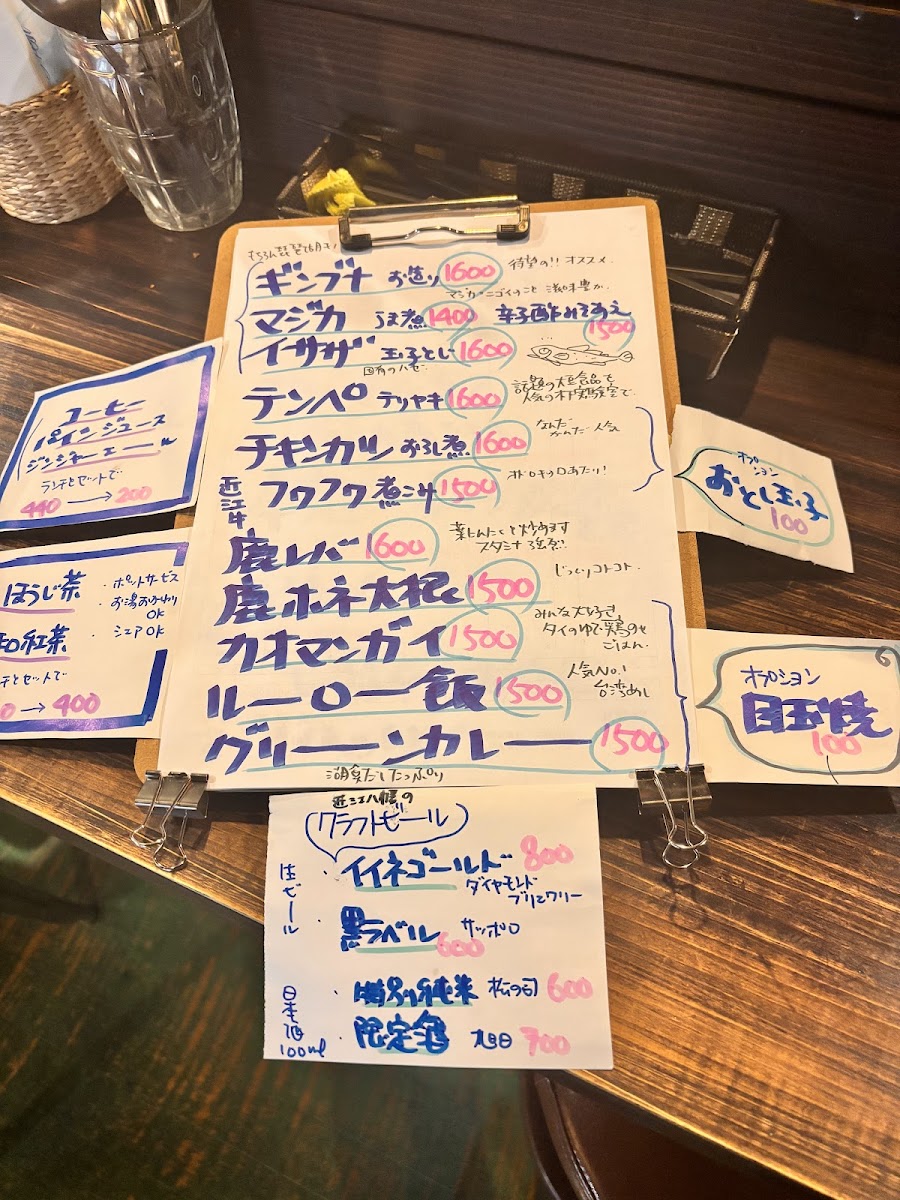 ギンブナ お造り 1600 待望の!! オススメ
マジカ=ニゴイのこと 滋味豊か
マジカ うま煮 1400 辛子酢みそあえ 1500
イサザ 玉子とじ 1600
固有のハゼ
テンペ テリヤキ 1600 話題の大豆食品を
人気の木下実験室で
チキンカツ おろし煮 1600 なんだ
かんだ 人気
近江牛 フワフワ煮 1500
鹿レバー 1600 葉にんにくと炒めます
スタミナ強烈!
鹿ホネ大根 1500 じっくりコトコト
カオマンガイ 1500 みんな大好き
タイのゆで鶏のせ
ごはん
ルーロー飯 1500 人気No.1
台湾めし
グリーンカレー 1500
湖魚だしたっぷり
コーヒー
パインジュース
ジンジャーエール
ランチとセットで
440 → 200
ほうじ茶 ・ポットサービス
・お湯おかわり
OK
和紅茶 ・シェアOK
チとセットで
0 → 400
オプション
おとし玉子
100
オプション
目玉焼
100
近江八幡の
クラフトビール
生ビール
・イイネゴールド 800
ダイヤモンド
ブリュワリー
・黒ラベル サッポロ
600
日本酒
100ml
・特別純米 松の司 600
限定 旭日 700